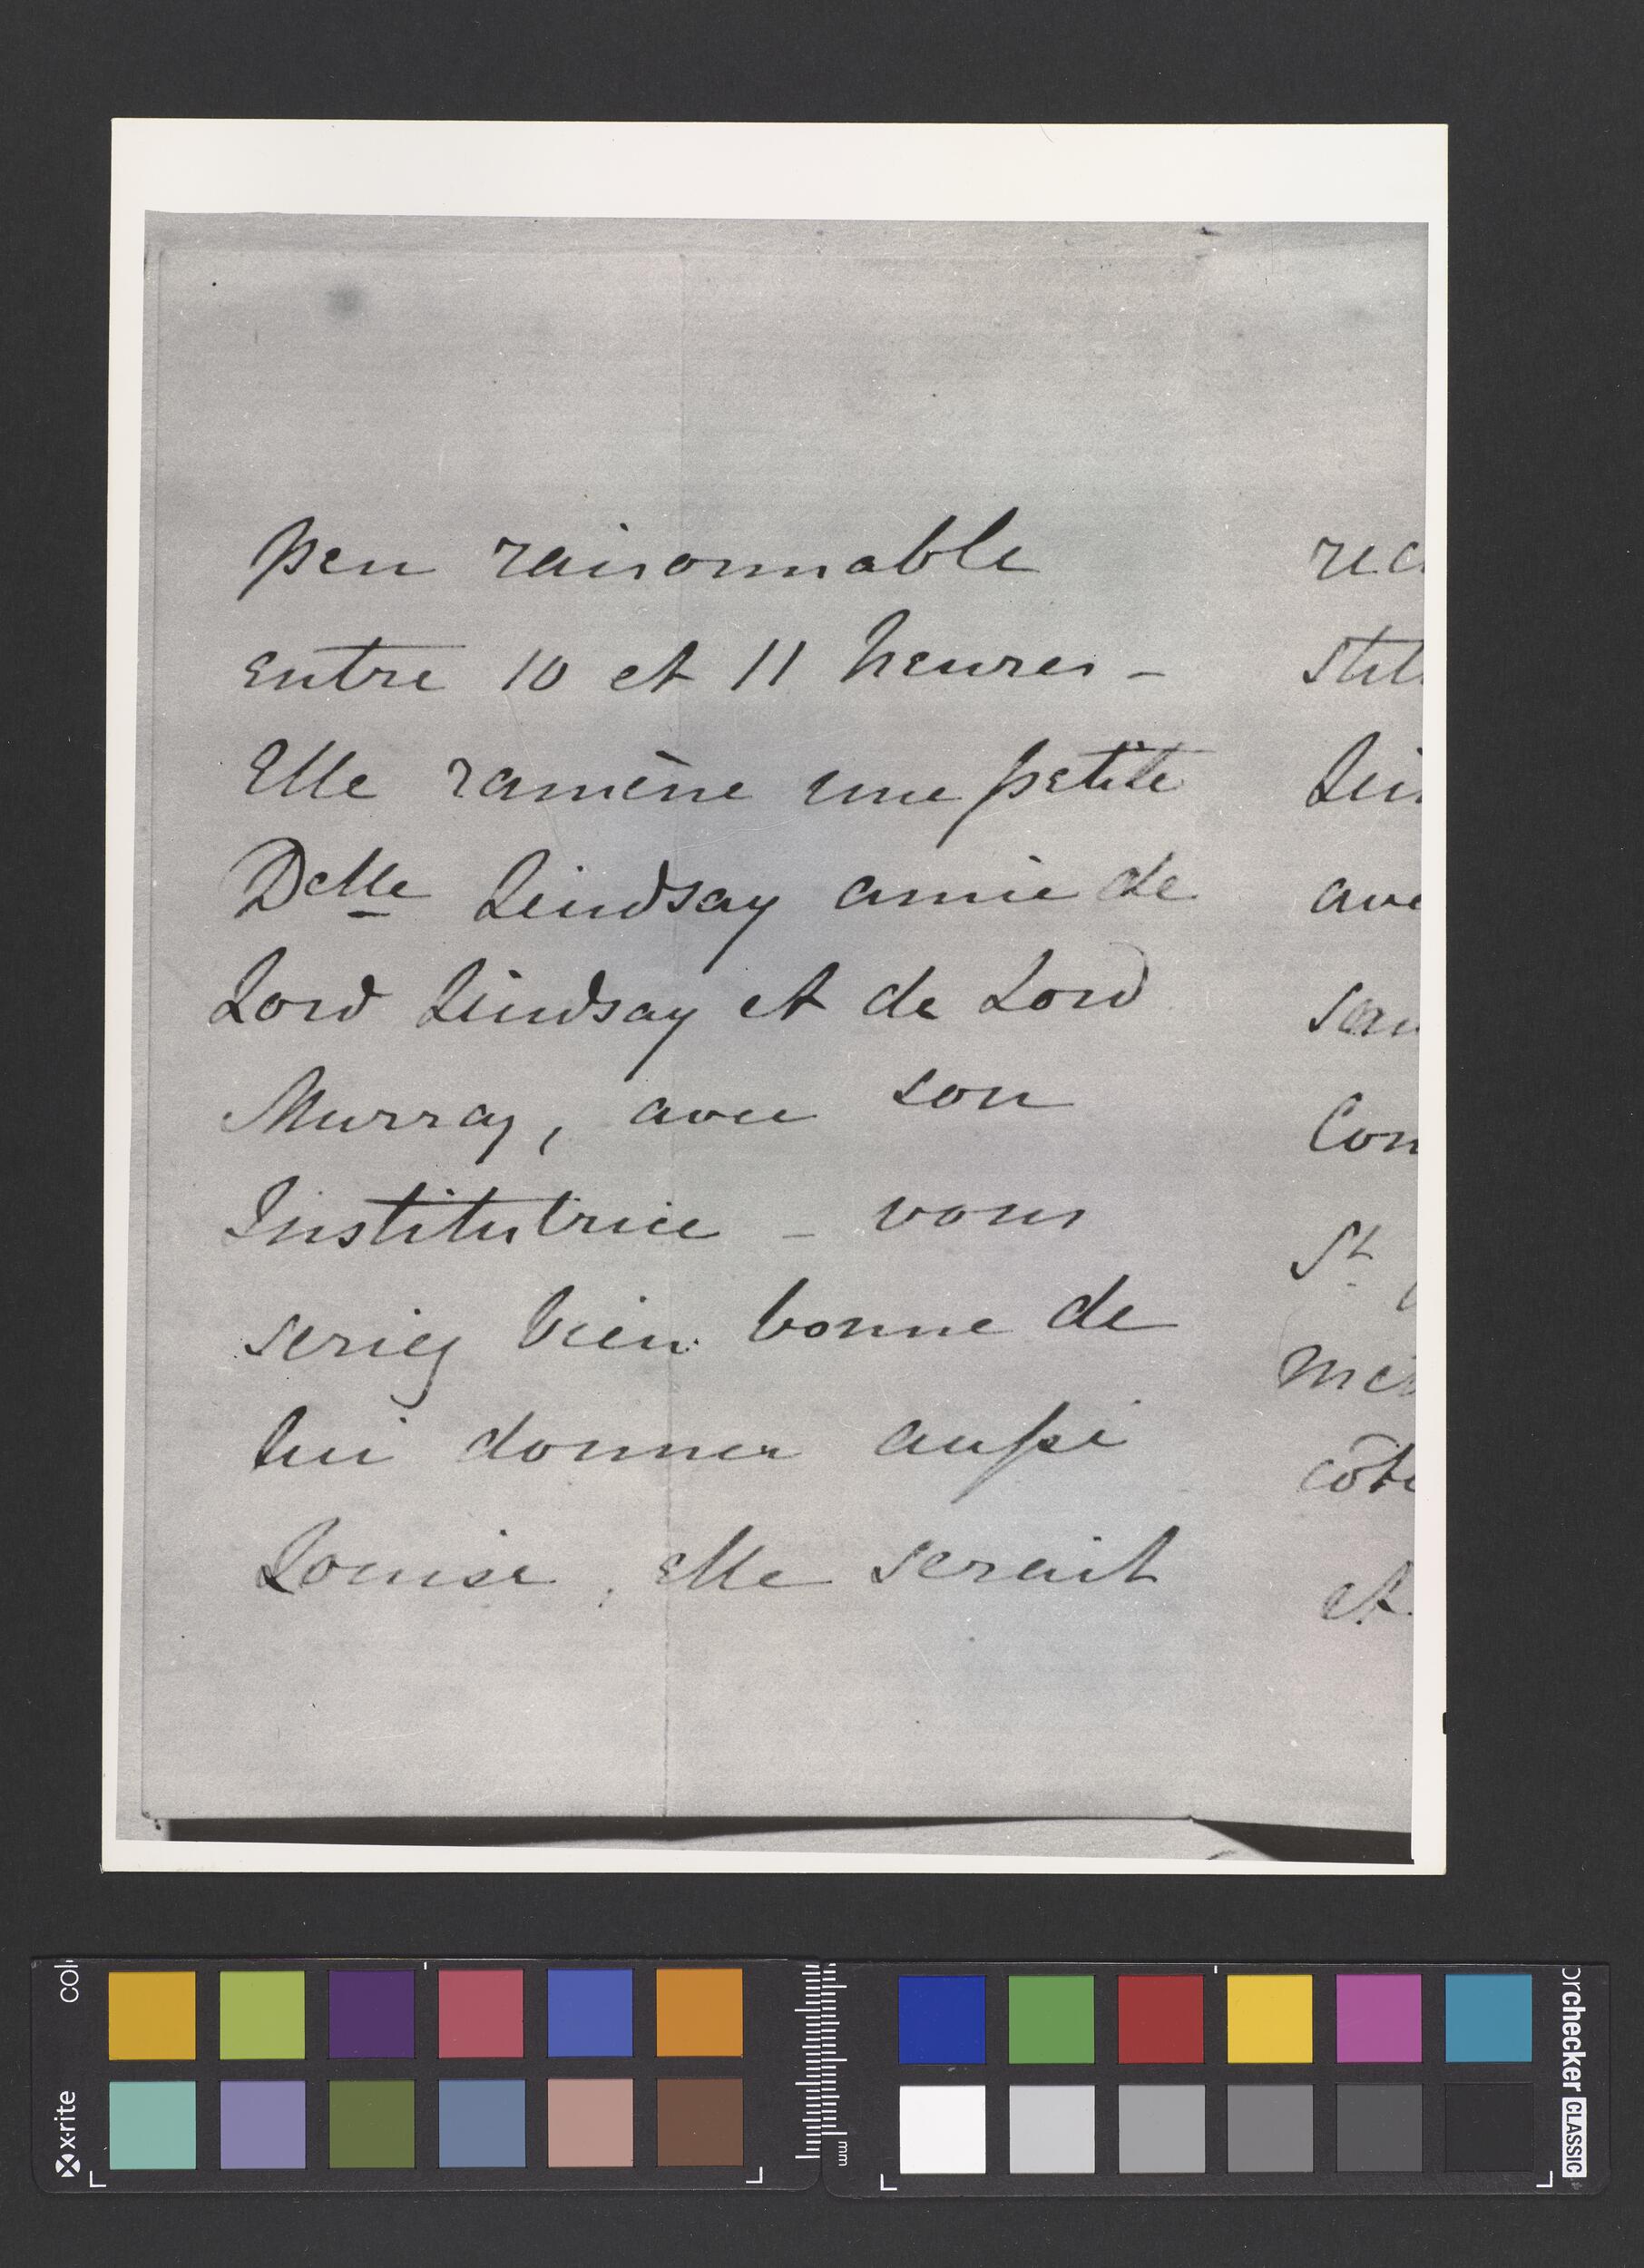 peu raisonnable
entre 10 et 11 heures –
Elle ramène une petite
Delle Lindsay amie de
Lord Lindsay et de Lord
Murray, avec son
Institutrice – vous
seriez bien bonne de
lui donner aussi
Louise, elle serait
rec
stit
Lin
ave
san
Com
St
mer
côté
et
colo
x-rite
mm
orchecker CLASSIC